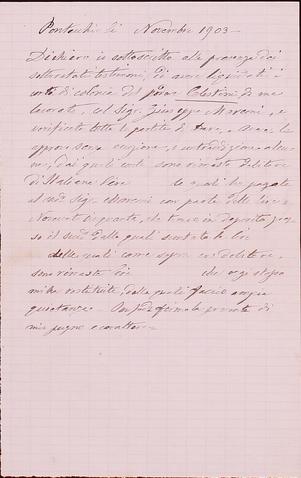 Pontacchi li Novembre 1903 -
Dichiaro io sottoscritto alla presenza dei
sottosegnati testimoni, di avere liquidati i
conti di colonia del podere Celestini da me
lavorato, col Sigr Giuseppe Moreni, e
verificato tutte le partite di Dare, e Avere le
approvo senza eccezione, e contradizione alcu-
ne, dai quali conti sono rimasto debitore
di Italiane Lire le quali ho pagate
al sudo Sigr Moreni con parte delle lire
che teneva in deposito pres-
so il sudo dalle quali
delle quali come sopra ero debitore,
sono rimaste lire che oggi stesso
mi ha restituite, dalle quali faccio ampia
quietanza. In fede firmo la presente di
mio pugno e carattere